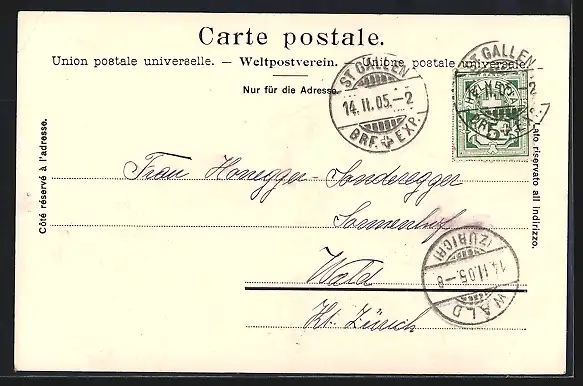 Carte postale.
Union postale universelle. — Weltpostverein. — Unione postale universale.
Nur für die Adresse
ST GALLEN
14.II.05.–2
BRF. EXP.
ST GALLEN
HELVETIA
5
Côté réservé à l'adresse.
Lato riservato all indirizzo.
Frau Honegger-Sonderegger
Sonnenhof
Wald
Kt. Zürich
(ZÜRICH)
14.II.05.–8
WALD